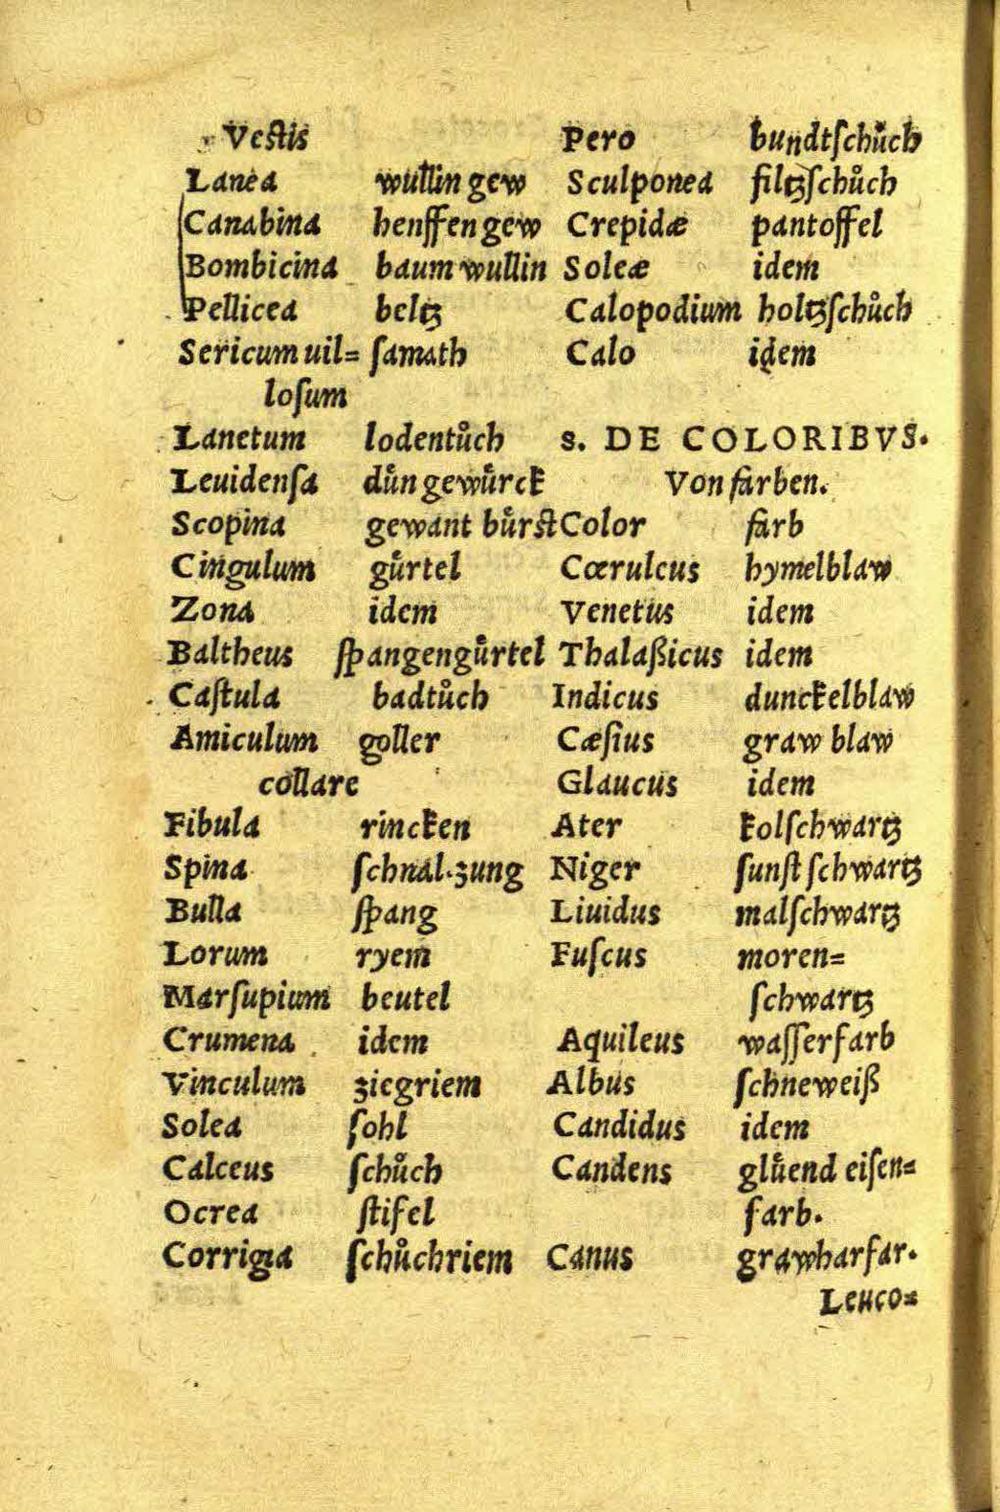 Vestis
Lanea wullin gew
Canabina henffen gew
Bombicina baum wullin
Pellicea beltz
Sericum uil= ſamath
loſum
Lanetum lodentůch
Leuidenſa důn gewůrck
Scopina gewant bůrst
Cingulum gůrtel
Zona idem
Baltheus ſpangengůrtel
Caſtula badtůch
Amiculum goller
collare
Fibula rincken
Spina ſchnal.zung
Bulla ſpang
Lorum ryem
Marſupium beutel
Crumena idem
Vinculum ziegriem
Solea ſohl
Calceus ſchůch
Ocrea ſtifel
Corrigia ſchůchriem
Pero bundtſchůch
Sculponea filtzſchůch
Crepidæ pantoffel
Soleæ idem
Calopodium holtzſchůch
Calo idem
8. DE COLORIBVS.
Von farben.
Color farb
Cœruleus hymelblaw
Venetus idem
Thalaßicus idem
Indicus dunckelblaw
Cæſius graw blaw
Glaucus idem
Ater kolſchwartz
Niger ſunſt ſchwartz
Liuidus malſchwartz
Fuſcus moren=
ſchwartz
Aquileus waſſerfarb
Albus ſchneweiß
Candidus idem
Candens glůend eiſen=
farb.
Canus grawharfar.
Leuco=